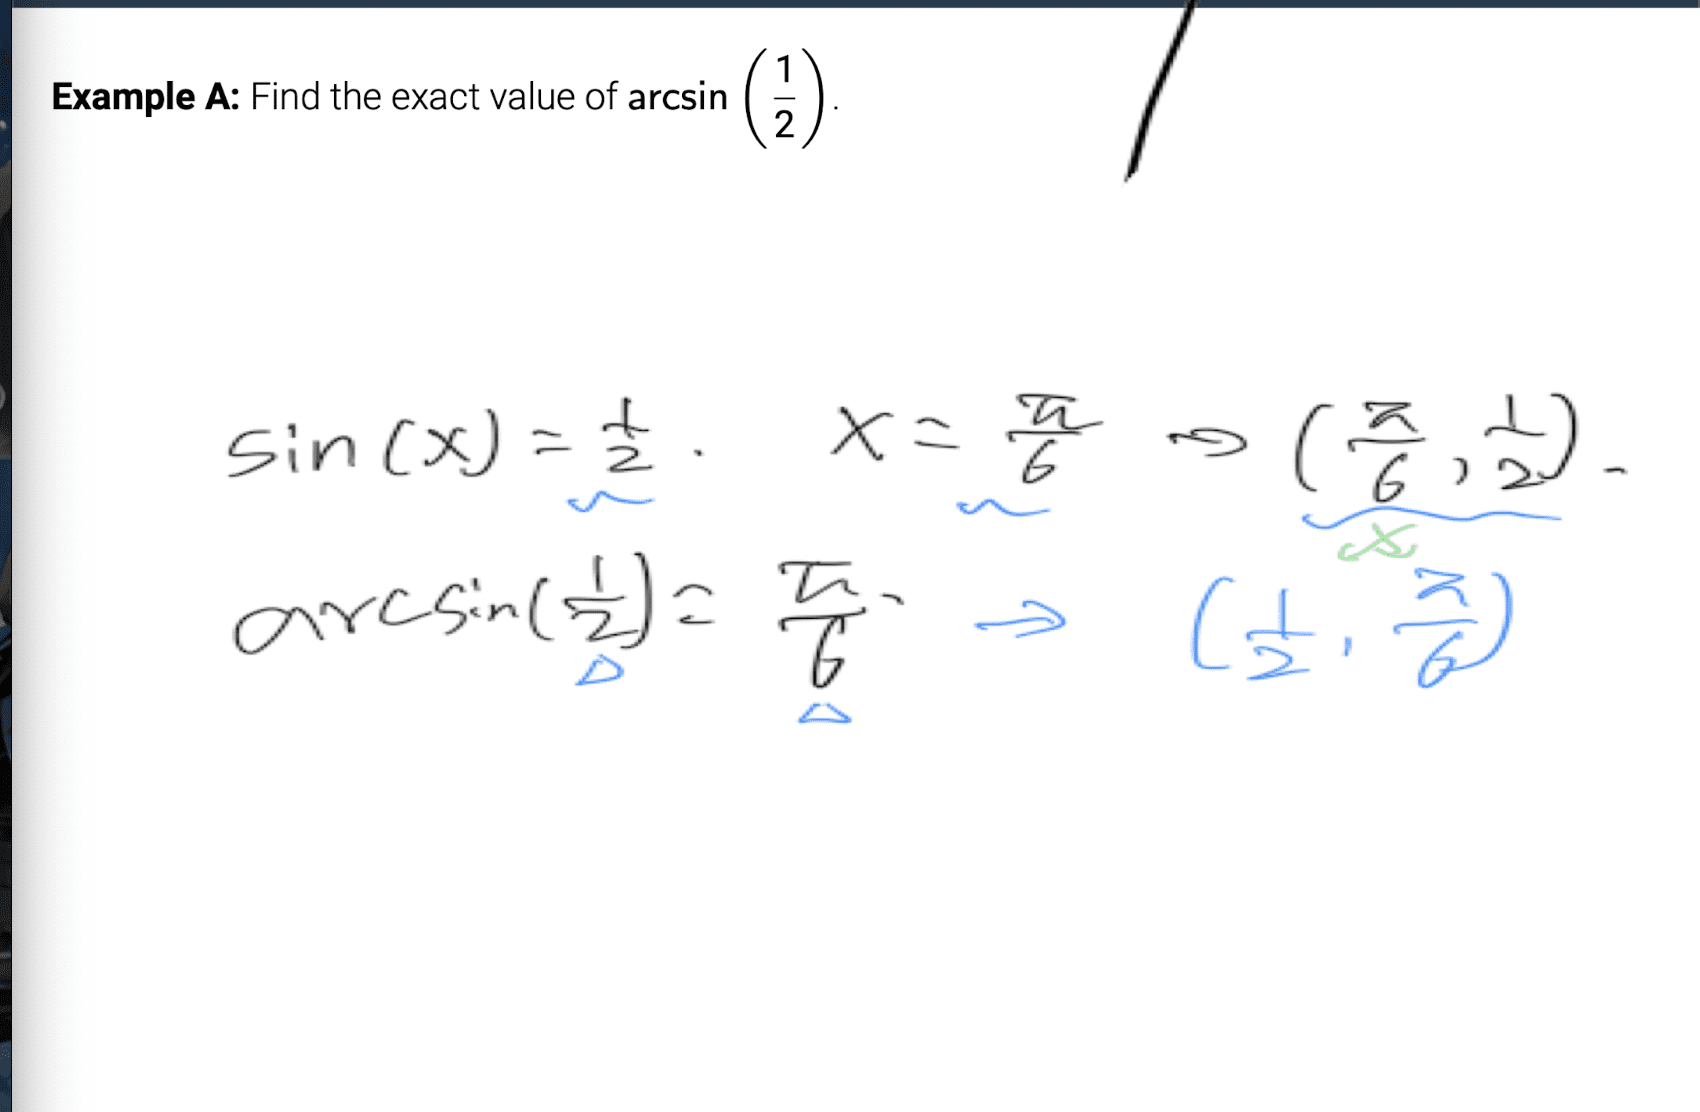 Example A: Find the exact value of arcsin (1/2).
sin(x) = 1/2. x = π/6 ⇒ (π/6, 1/2).
x
arcsin(1/2) = π/6. ⇒ (1/2, π/6)